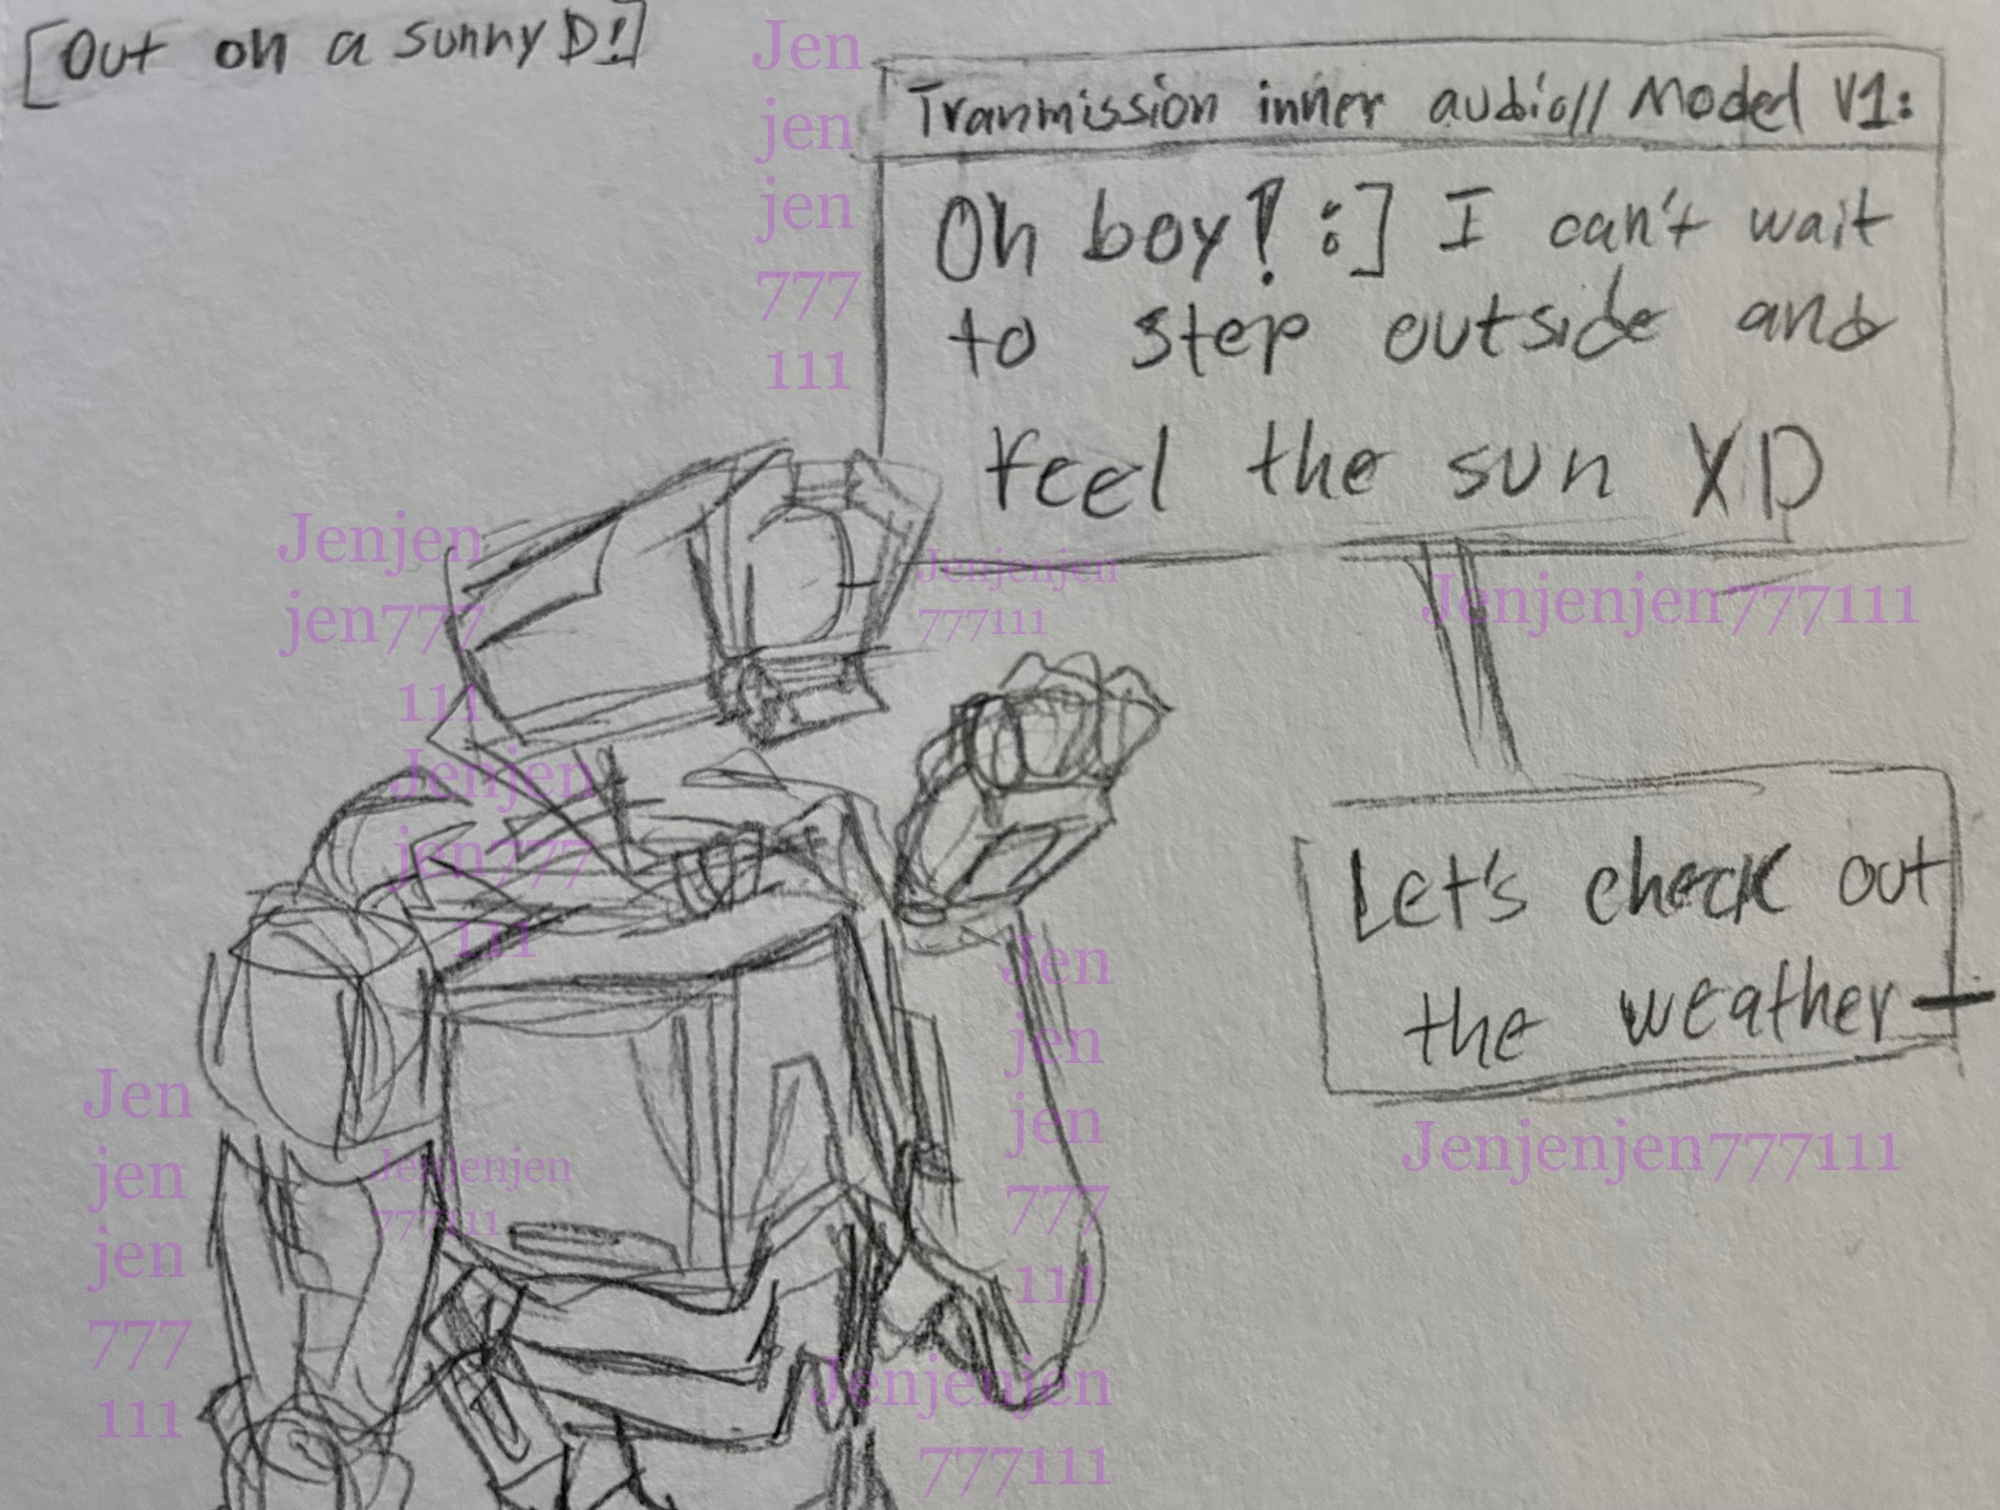 [Out on a sunny D!]
Tranmission inner audio// Model V1:
Oh boy! :] I can't wait
to step outside and
feel the sun XD
Let's check out
the weather—
Jen
jen
jen
777
111
Jenjen
jen777
111
Jenjenjen
777111
Jenjenjen777111
Jenjen
jen777
111
Jen
jen
jen
777
111
Jen
jen
jen
777
111
Jenjenjen
777111
Jenjenjen777111
Jenjenjen
777111